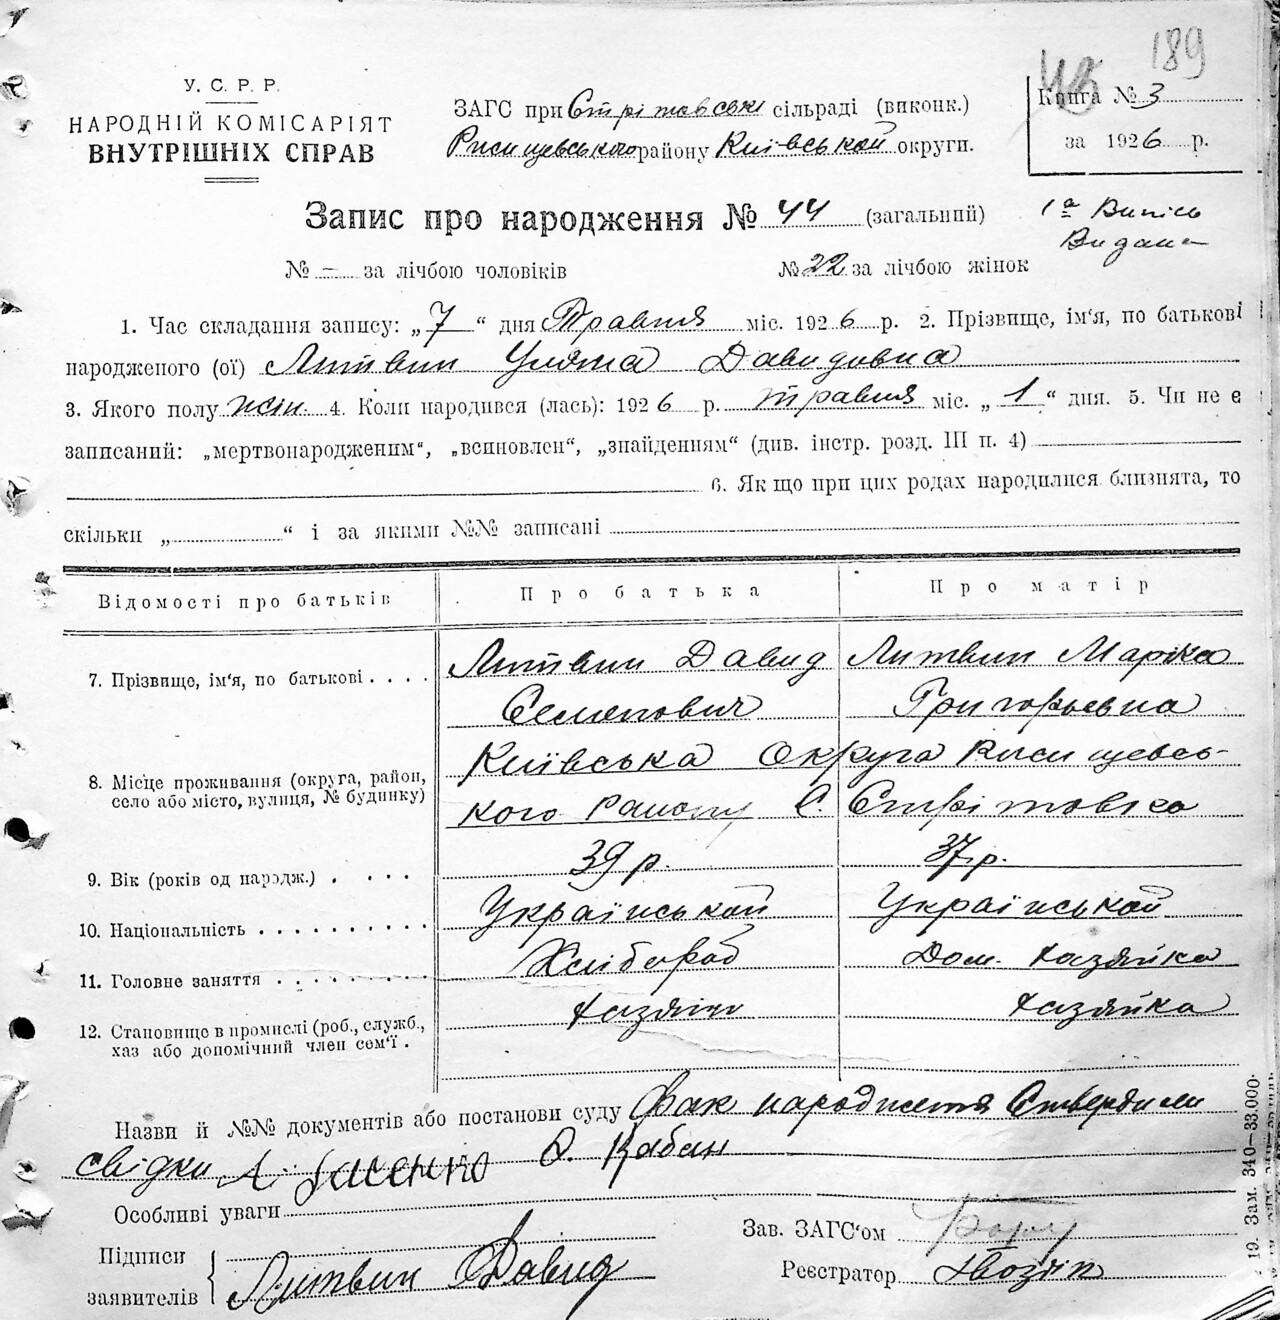 189
У. С. Р. Р.
НАРОДНІЙ КОМІСАРІЯТ
ВНУТРІШНІХ СПРАВ
ЗАГС при Стрітовські сільраді (виконк.)
Рисищевського району Київськой округи.
Книга № 3
за 1926 р.
Запис про народження № 44 (загальний)
1а Випісь
Видана
№ - за лічбою чоловіків
№ 22 за лічбою жінок
1. Час складання запису: „7“ дня Травня міс. 1926 р. 2. Прізвище, ім'я, по батькові
народженого (ої) Литвин Уляна Давидовна
3. Якого полу жін. 4. Коли народився (лась): 1926 р. травня міс. „1“ дня. 5. Чи не є
записаний: „мертвонародженим“, „всиновлен“, „знайденням“ (див. інстр. розд. III п. 4)
6. Якщо при цих родах народилися близнята, то
скільки „ “ і за якими №№ записані
Відомості про батьків
Про батька
Про матір
7. Прізвище, ім'я, по батькові
Литвин Давид
Семенович
Литвин Марика
Григорьевна
8. Місце проживання (округа, район,
село або місто, вулиця, № будинку)
Київська Округа Рисищевсь-
кого Району С. Стрітовка
9. Вік (років од народж.)
39 р.
37 р.
10. Національність
Українськой
Українськой
11. Головне заняття
Хлібороб
Дом. хазяйка
12. Становище в промислі (роб., служб.,
хаз або допомічний член сем'ї .
хазяін
хазяйка
Назви й №№ документів або постанови суду Фак народження Ствердили
свідки О. Кабан
Особливі уваги
Підписи
заявителів
Литвин Давид
Зав. ЗАГС'ом
Реєстратор Гвоздік
19. Зам. 340—33.000.